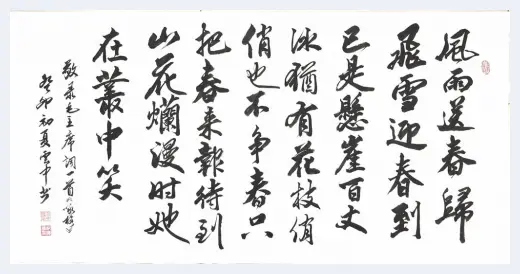 風雨送春歸
飛雪迎春到
已是懸崖百丈
冰猶有花枝俏
俏也不争春只
把春来報待到
山花爛漫时她
在叢中笑
敬录毛主席词一首咏梅
癸卯初夏雲中书